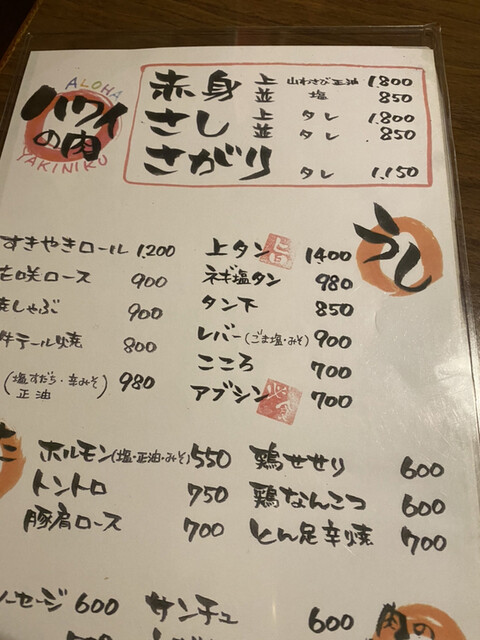 ALOHA
ハワイの肉
YAKINIKU
赤身 上 山わさび正油 1,800
並 塩 850
さし 上 タレ 1,800
並 タレ 850
さがり タレ 1,150
うし
すきやきロール 1,200
咲ロース 900
しゃぶ 900
テール焼 800
(塩すだち・辛みそ 正油) 980
上タン 1400
ネギ塩タン 980
タン下 850
レバー(ごま塩・みそ) 900
こころ 700
アブシン 700
ホルモン(塩・正油・みそ) 550
トントロ 750
豚肩ロース 700
鶏せせり 600
鶏なんこつ 600
とん足辛焼 700
ーセージ 600
サンチュ 600
肉の